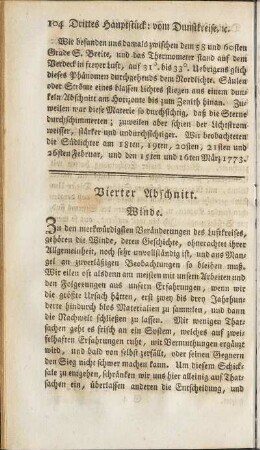 104 Drittes Hauptstück: vom Dunstkreise, ꝛc.
Wir befanden uns damals zwischen dem 58 und 60sten
Grade S. Breite, und das Thermometer stand auf dem
Verdeck in freyer Luft, auf 31° bis 33°. Uebrigens glich
dieses Phänomen durchgehends dem Nordlichte. Säulen
oder Ströme eines blassen Lichtes stiegen aus einem dun-
keln Abschnitt am Horizonte bis zum Zenith hinan. Zu-
weilen war diese Materie so durchsichtig, daß die Sterne
durchschimmerten; zuweilen aber schien der Lichtstrom
weisser, stärker und undurchsichtiger. Wir beobachteten
die Südlichter am 18ten, 19ten, 20sten, 21sten und
26sten Februar, und den 15ten und 16ten März 1773.
Vierter Abschnitt.
Winde.
Zu den merkwürdigsten Veränderungen des Luftkreises,
gehören die Winde, deren Geschichte, ohnerachtet ihrer
Allgemeinheit, noch sehr unvollständig ist, und aus Man-
gel an zuverläßigen Beobachtungen so bleiben muß.
Wir eilen oft alsdenn am meisten mit unsern Arbeiten und
den Folgerungen aus unsern Erfahrungen, wenn wir
die größte Ursach hätten, erst zwey bis drey Jahrhun-
derte hindurch blos Materialien zu sammlen, und dann
die Nachwelt schließen zu lassen. Mit wenigen That-
sachen geht es frisch an ein System, welches auf zwei-
felhaften Erfahrungen ruht, mit Vermuthungen ergänzt
wird, und bald von selbst zerfällt, oder seinen Gegnern
den Sieg nicht schwer machen kann. Um diesem Schick-
sale zu entgehen, schränken wir uns hier alleinig auf That-
sachen ein, überlassen anderen die Entscheidung, und